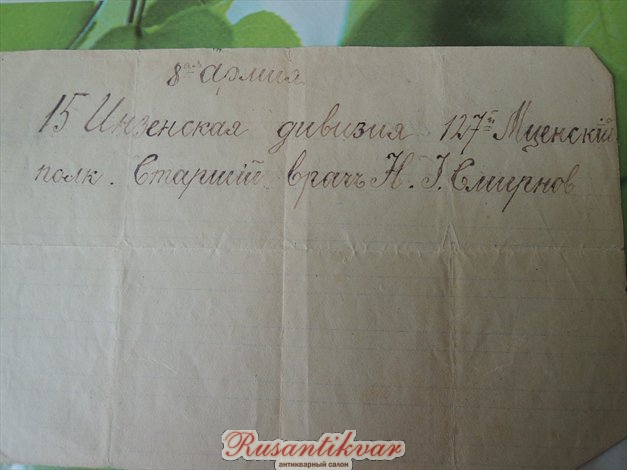 8-ая армия
15 Инзенская дивизия 127-й Мценскій
полк. Старшій врачъ Н. І. Смирнов
Rusantikvar
антикварный салон